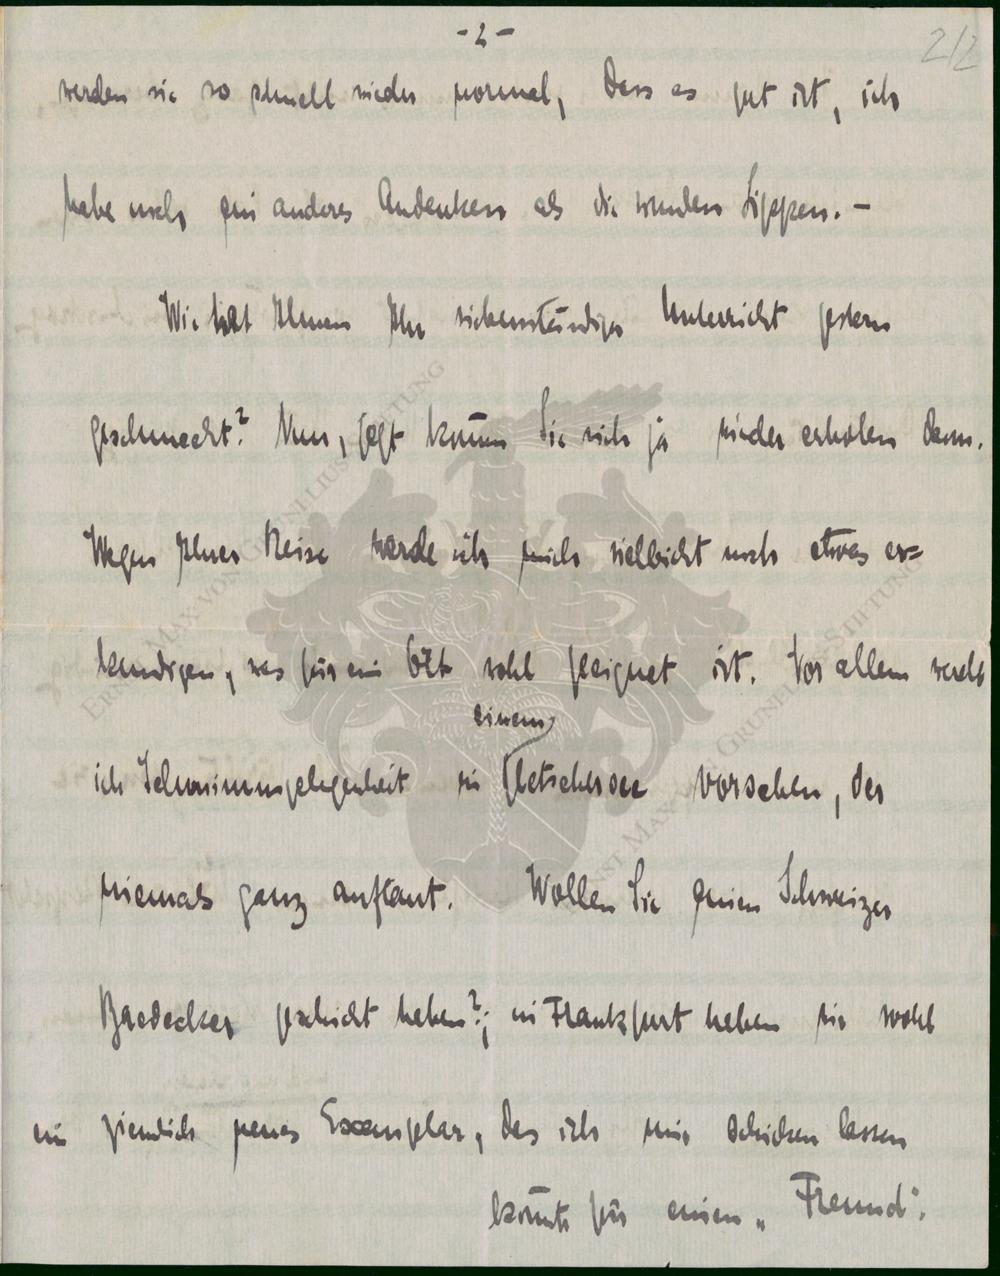 -2-
2/2
werden sie so schnell wieder normal, Dass es gut ist, ich
habe noch ein anderes Andenken als die wunden Lippen. -
Wie hat Ihnen Ihr siebenstündiger Unterricht gestern
geschmeckt? Nun, jetzt können Sie sich ja wieder erholen davon.
Wegen Ihrer Reise werde ich mich vielleicht noch etwas er=
kundigen, was für ein Ort wohl geeignet ist. Vor allem werde
einem
ich Schwimmgelegenheit in Gletschersee vorsehen, der
niemals ganz auftaut. Wollen Sie einen Schweizer
Baedecker geschickt haben?; in Frankfurt haben wir wohl
ein ziemlich neues Exemplar, das ich mir schicken lassen
könnte für einen „Freund".
ERNST MAX VON GRUNELIUS-STIFTUNG
ERNST MAX VON GRUNELIUS-STIFTUNG